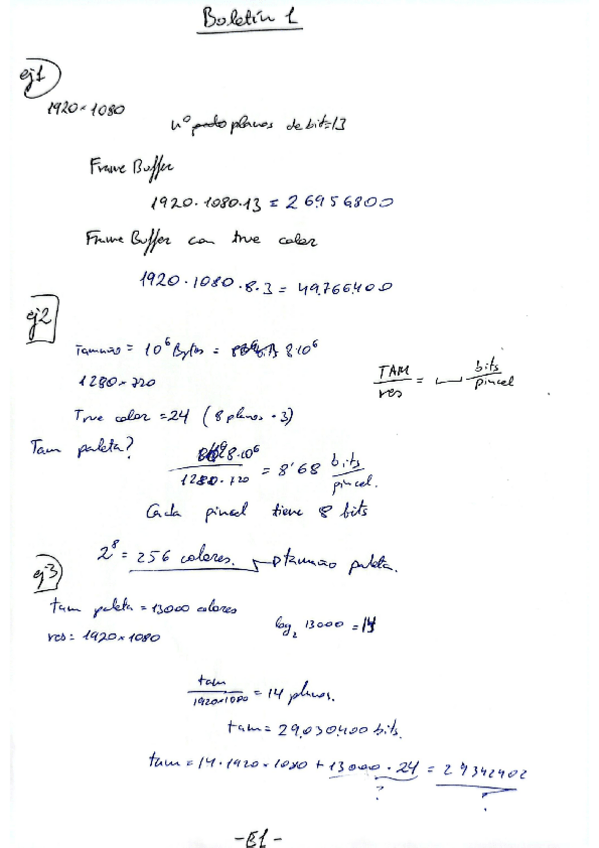 Boletín 1
ej1
1920×1080
nº planos de bit=13
Frame Buffer
1920·1080·13 = 26956800
Frame Buffer con true color
1920·1080·8·3 = 49.766.400
ej2
Tamaño = 10⁶ Bytes = 8·10⁶
1280×720
TAM/res = bits/pincel
True color = 24 (8 planos · 3)
Tam paleta?
8·10⁶/1280·720 = 8'68 bits/pincel.
Cada pincel tiene 8 bits
2⁸ = 256 colores. → tamaño paleta.
ej3
tam paleta = 13000 colores
res = 1920×1080
log₂ 13000 = 14
tam/1920×1080 = 14 planos.
tam = 29.030.400 bits.
tam = 14·1920×1080 + 13000·24 = 29342402
? ?
-E1-